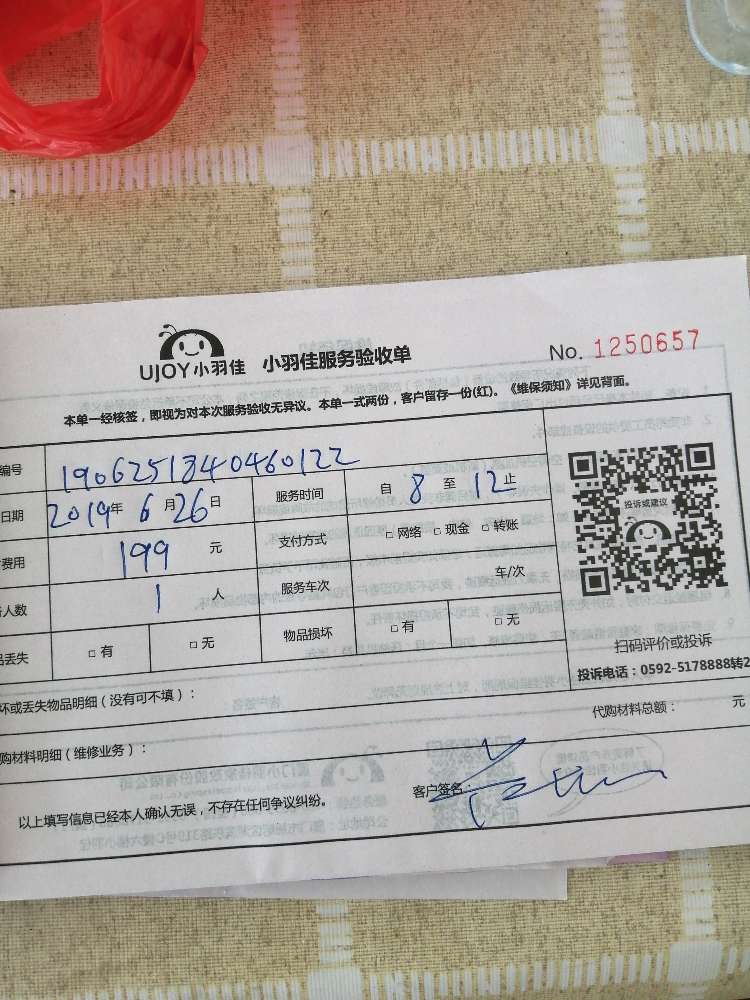 UJOY小羽佳 小羽佳服务验收单 No. 1250657
本单一经核签，即视为对本次服务验收无异议。本单一式两份，客户留存一份(红)。《维保须知》详见背面。
编号 1906251840460122
日期 2019年 6月26日 服务时间 自 8 至 12止
费用 199 元 支付方式 □ 网络 □ 现金 □ 转账
人数 1 人 服务车次 车/次
丢失 □ 有 □ 无 物品损坏 □ 有 □ 无
投诉或建议
扫码评价或投诉
投诉电话：0592-5178888转2
坏或丢失物品明细（没有可不填）：
代购材料总额： 元
购材料明细（维修业务）：
以上填写信息已经本人确认无误，不存在任何争议纠纷。
客户签名：